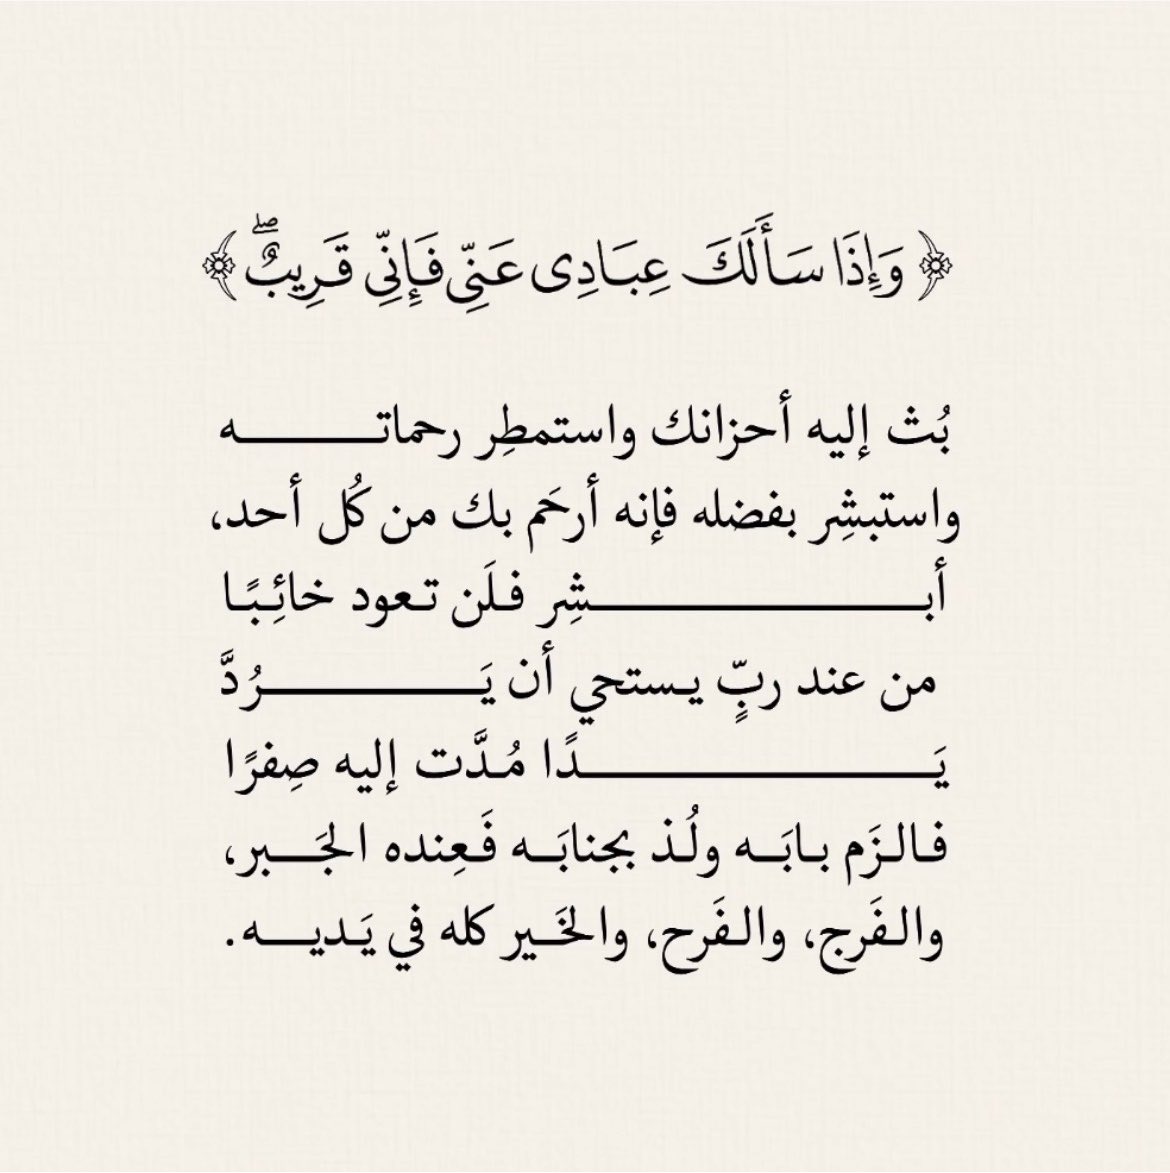 ﴿ وَإِذَا سَأَلَكَ عِبَادِى عَنِّى فَإِنِّى قَرِيبٌ ۖ ﴾
بُث إليه أحزانك واستمطِر رحماتـــــــــه
واستبشِر بفضله فإنه أرحَم بك من كُل أحد،
أبـــــــــــــــــــشِر فلَن تعود خائِبًا
من عند ربٍّ يستحي أن يَـــــــــــرُدَّ
يَـــــــــــــــــــدًا مُدَّت إليه صِفرًا
فالزَم بابَــه ولُذ بجنابَــه فَعِنده الجَــبر،
والفَرج، والفَرح، والخَــير كله في يَديـــه.